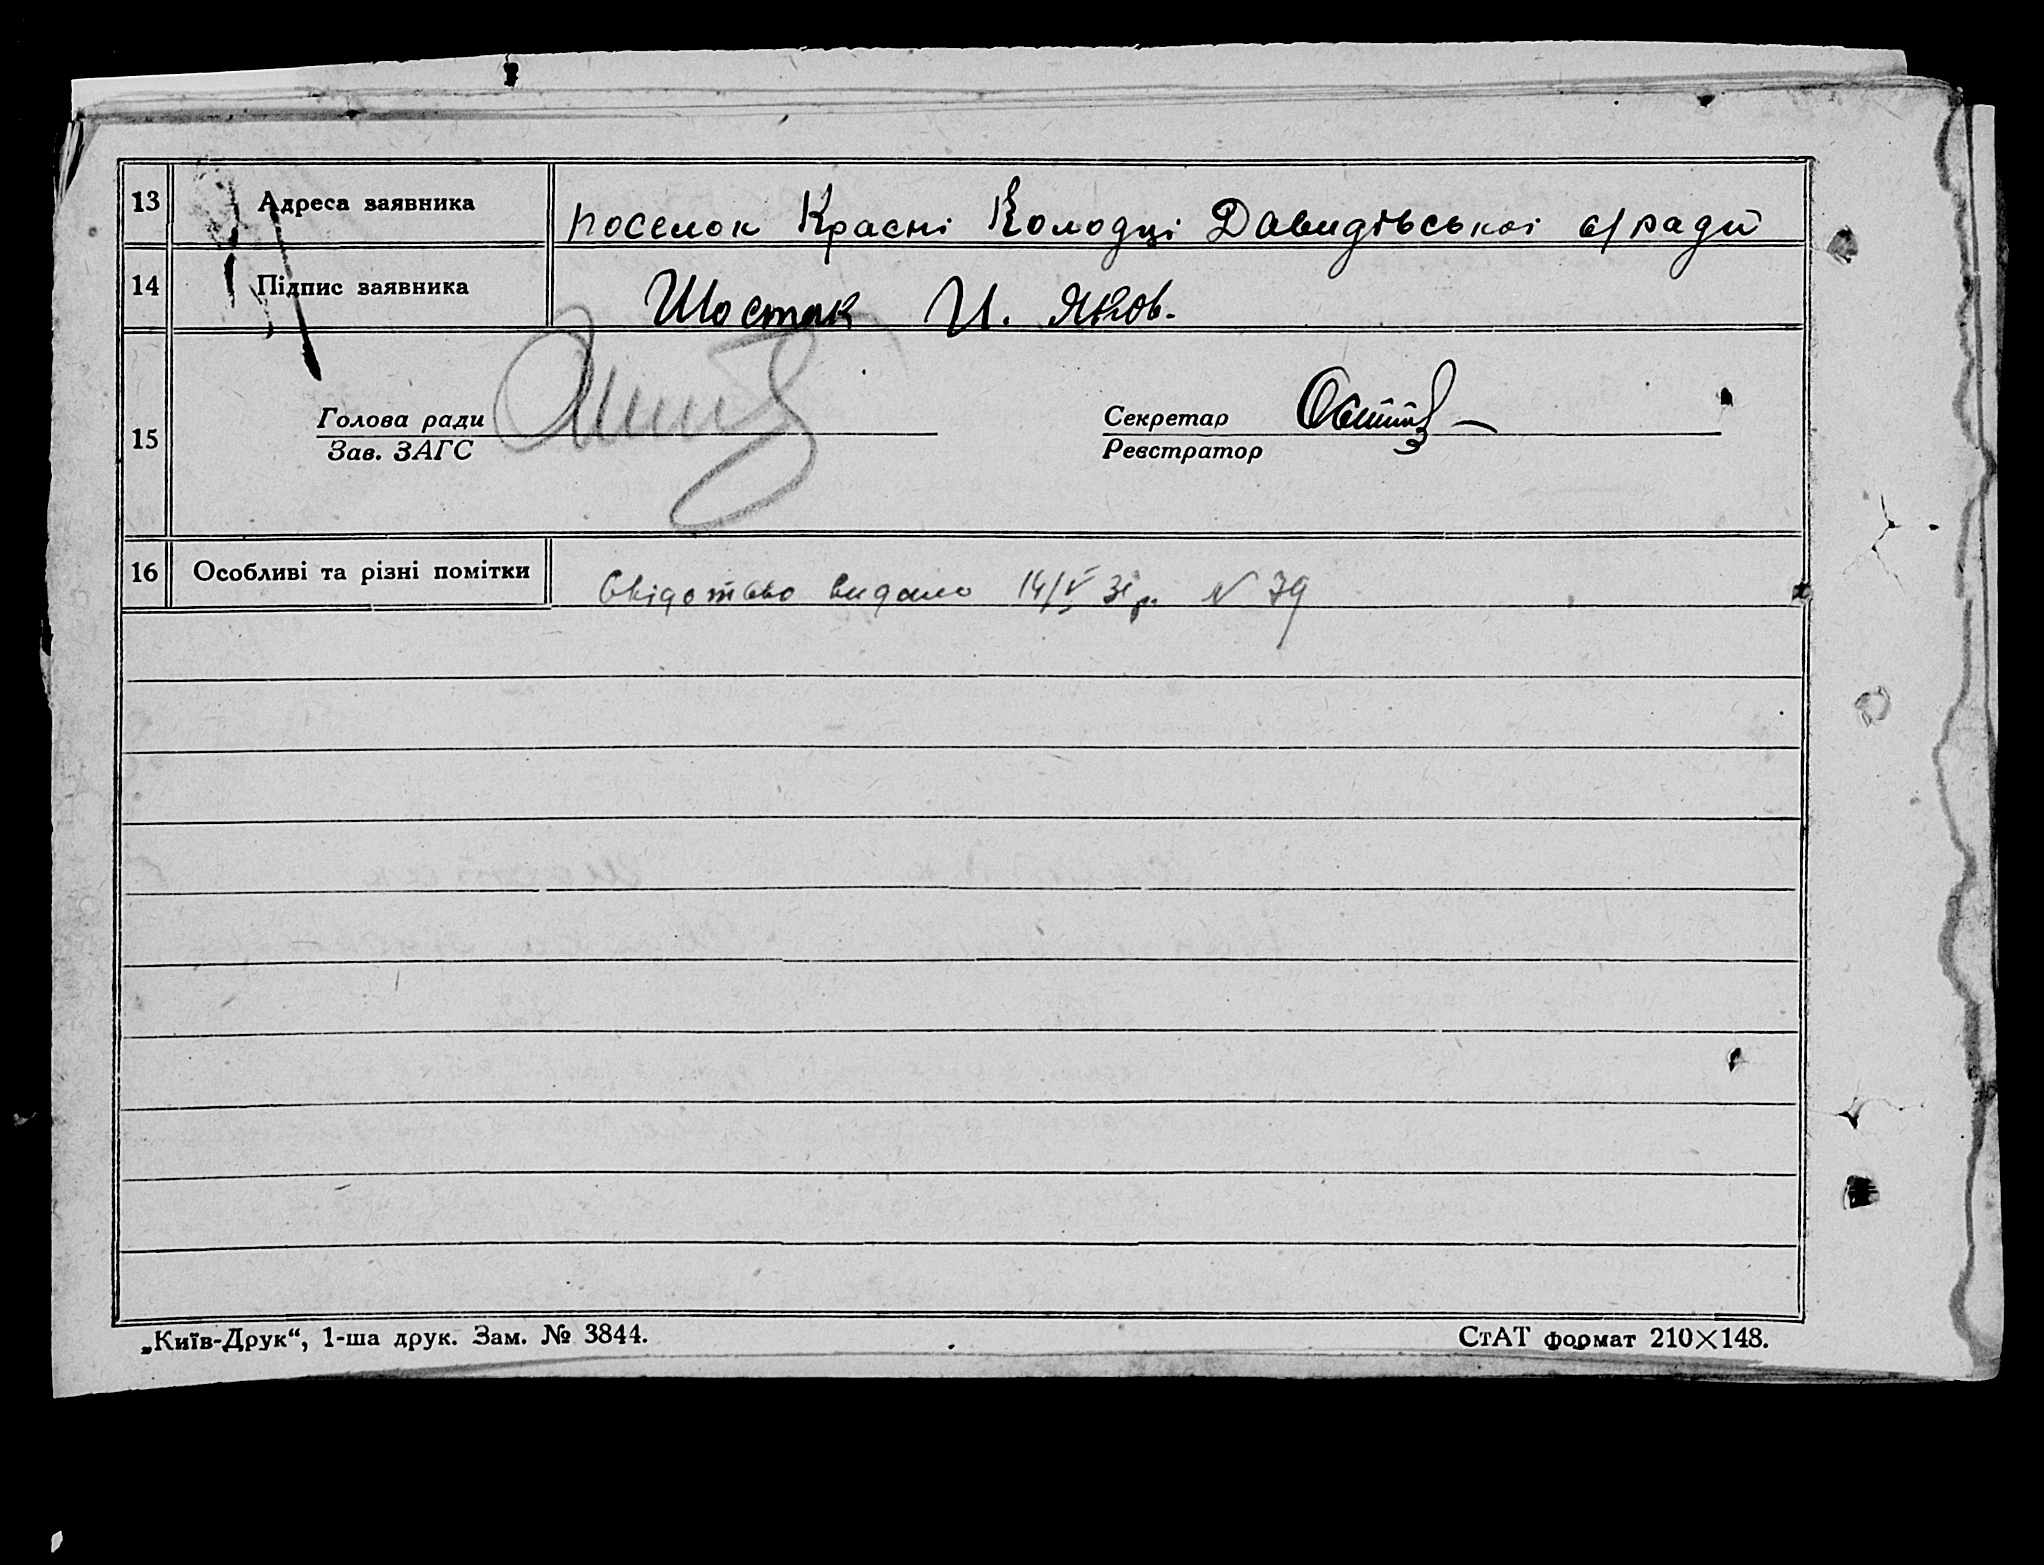 13 Адреса заявника поселок Красні Колодці Давидівської с/ради
14 Підпис заявника Шостак И. Яков.
15 Голова ради Секретар
Зав. ЗАГС Реєстратор
16 Особливі та різні помітки Свідотство видано 14/V 31р. N 79
„Київ-Друк“, 1-ша друк. Зам. № 3844. СтАТ формат 210×148.